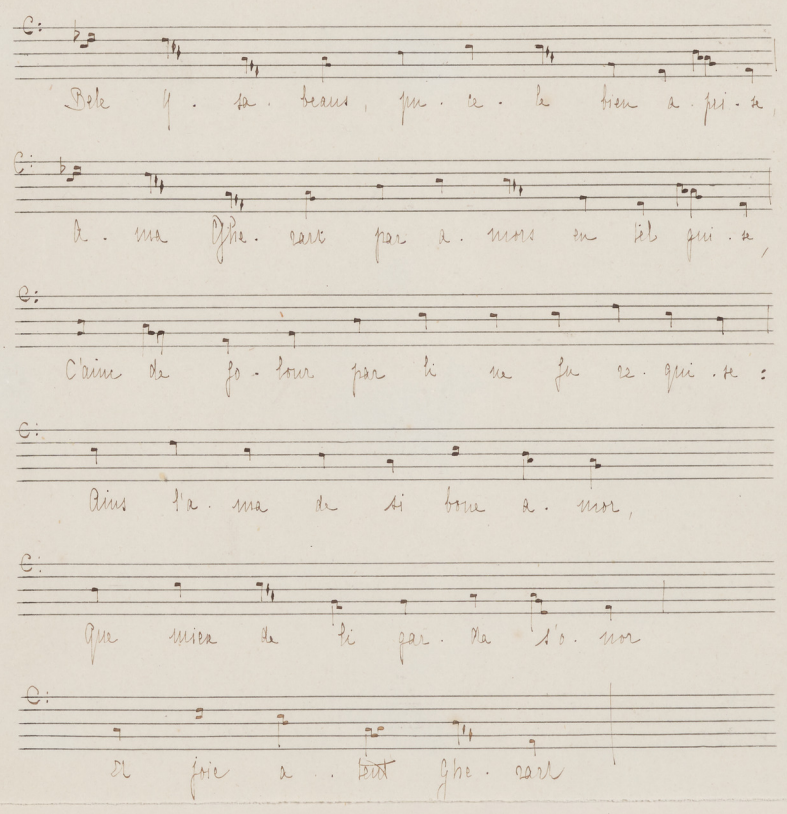 Bele Y. sa. beaus, pu. ce. le bien a. pri. se,
A. ma Ghe. rart par a. mors en tel gui. se,
C'ainc de fo. lour par li ne fu re. qui. se:
Ains l'a. ma de si bone a. mor,
Que miex de li gar. da s'o. nor
Et joie a.. tent Ghe. rart